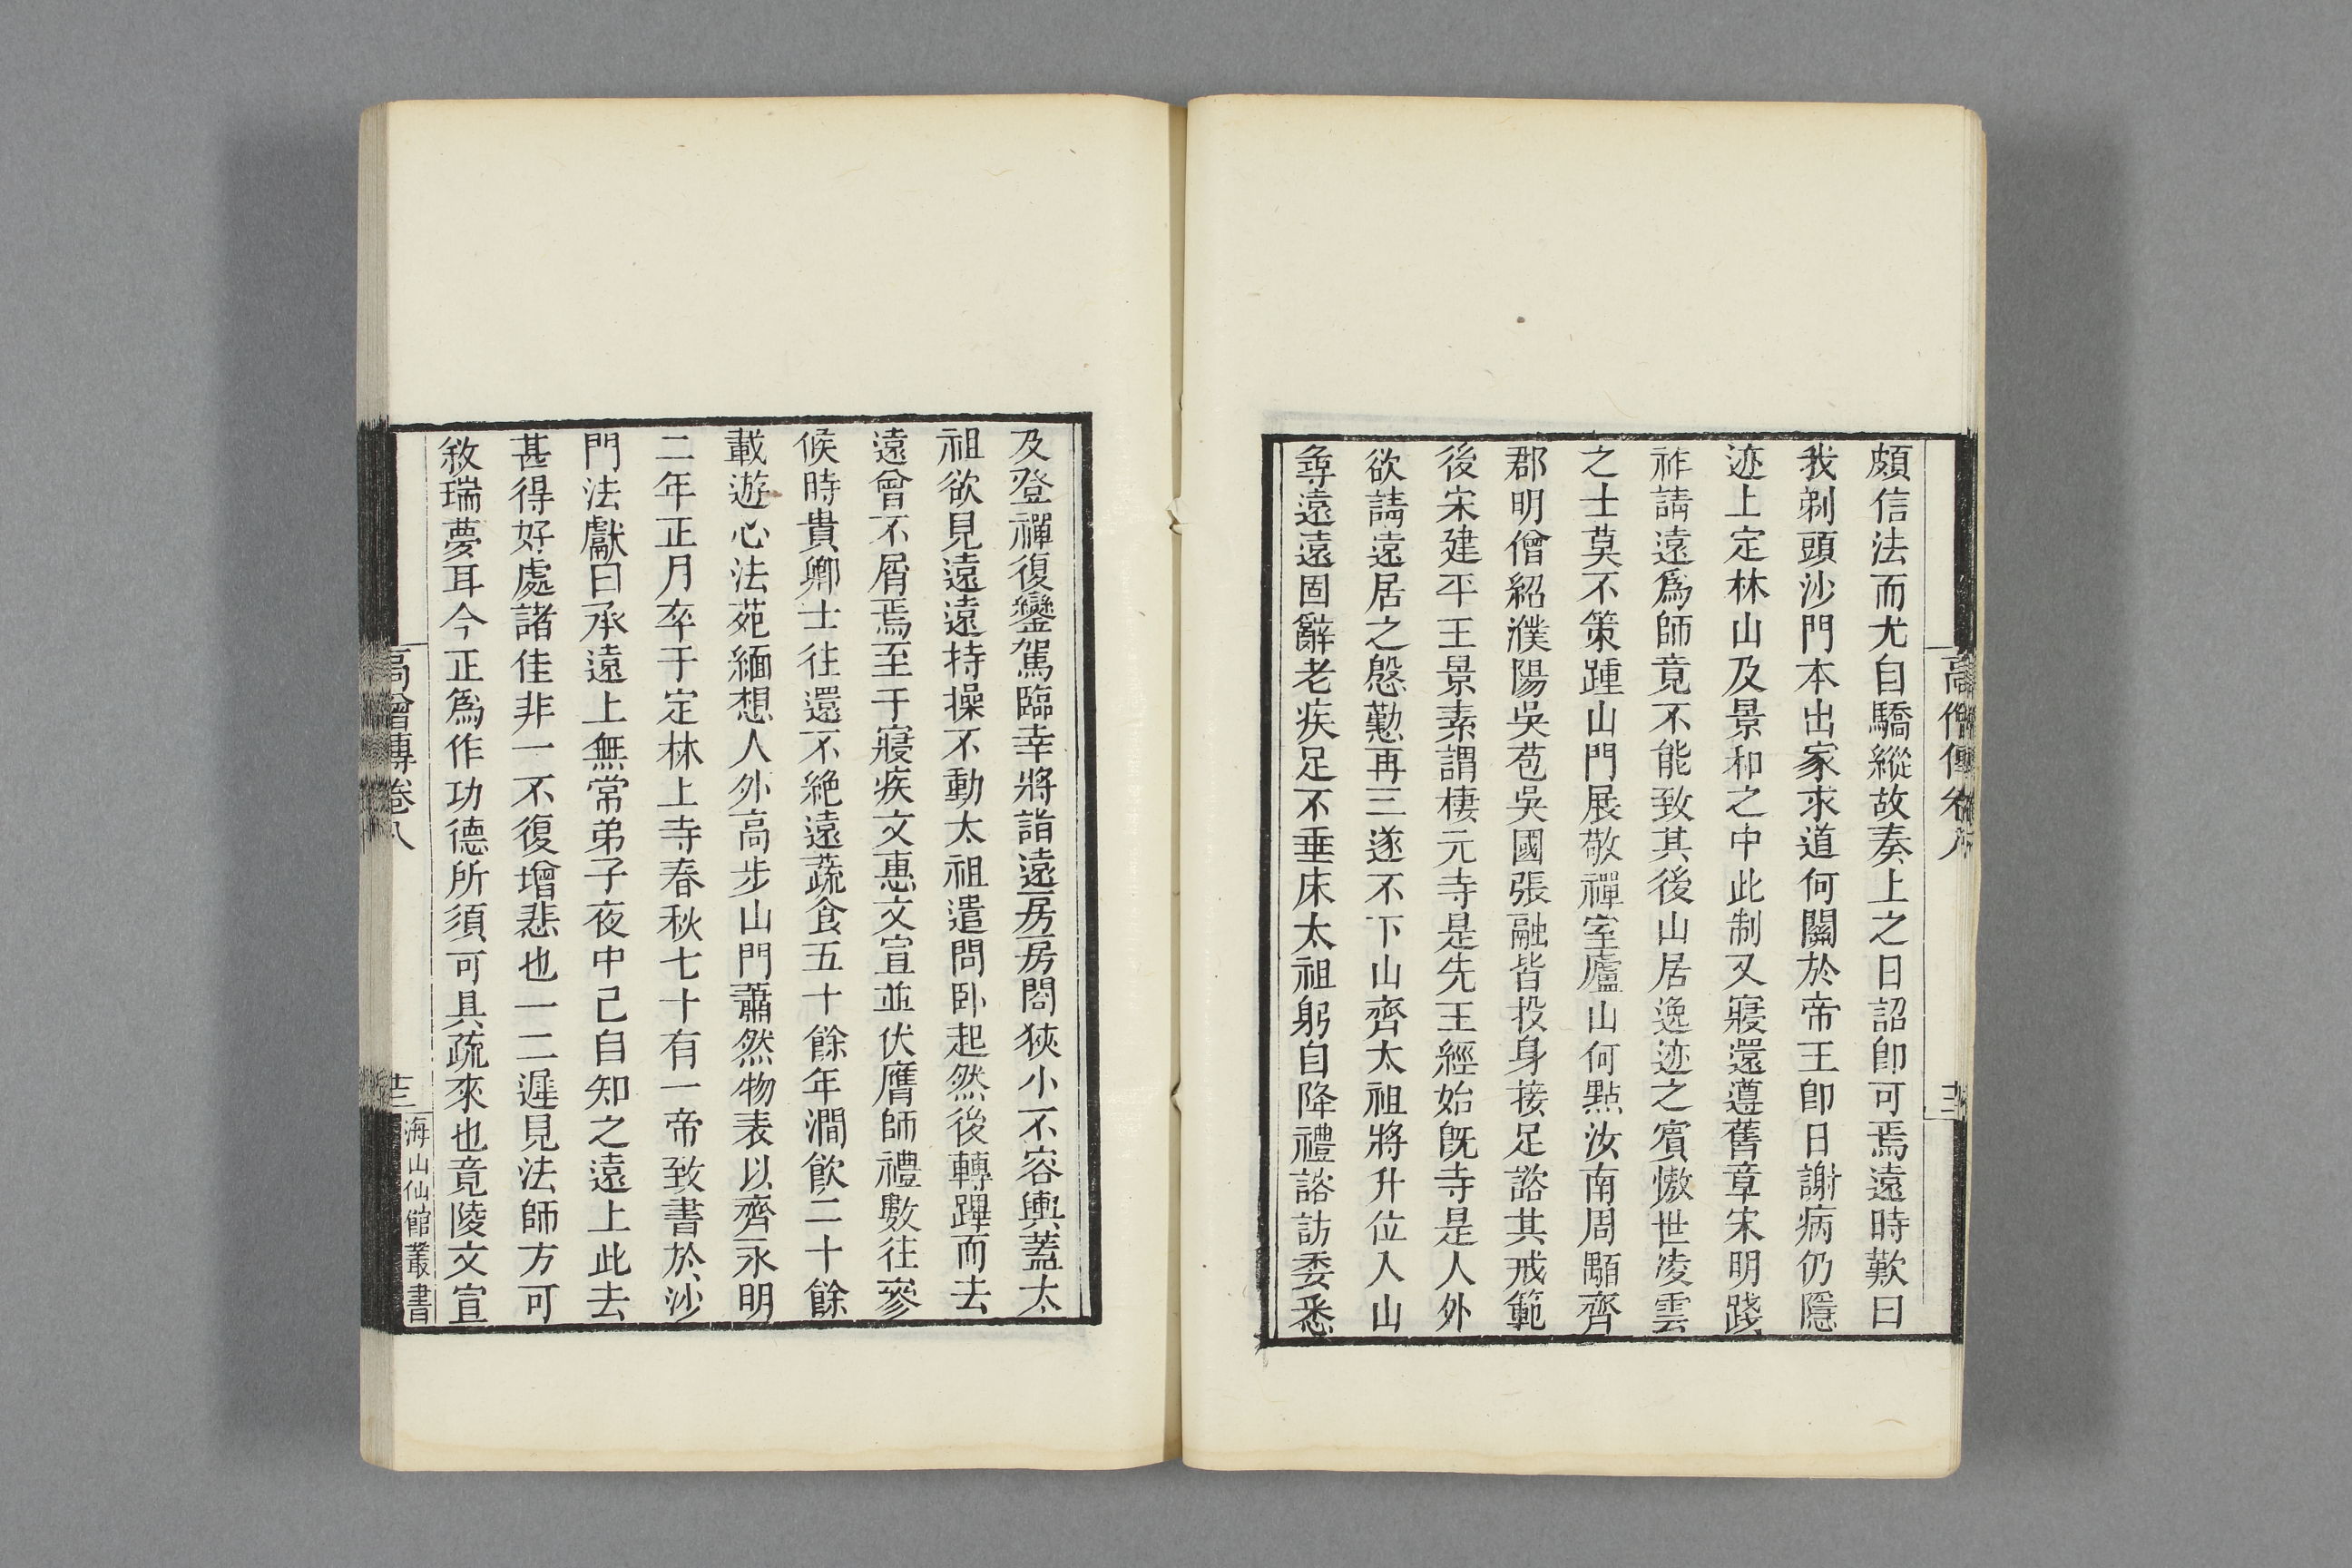 高僧傳卷八
頗信法而尤自驕縱故奏上之日詔卽可焉遠時歎曰
我剃頭沙門本出家求道何關於帝王卽日謝病仍隱
迹上定林山及景和之中此制又寢還遵舊章宋明踐
祚請遠爲師竟不能致其後山居逸迹之賓慠世凌雲
之士莫不策踵山門展敬禪室廬山何點汝南周顒齊
郡明僧紹濮陽吳苞吳國張融皆投身接足諮其戒範
後宋建平王景素謂棲元寺是先王經始旣寺是人外
欲請遠居之慇懃再三遂不下山齊太祖將升位入山
尋遠遠固辭老疾足不垂床太祖躬自降禮諮訪委悉
及登禪復鑾駕臨幸將詣遠房房閤狹小不容輿蓋太
祖欲見遠遠持操不動太祖遣問臥起然後轉蹕而去
遠曾不屑焉至于寢疾文惠文宣並伏膺師禮數往參
候時貴卿士往還不絶遠蔬食五十餘年澗飮二十餘
載遊心法苑緬想人外高步山門蕭然物表以齊永明
二年正月卒于定林上寺春秋七十有一帝致書於沙
門法獻曰承遠上無常弟子夜中已自知之遠上此去
甚得好處諸佳非一不復增悲也一二遲見法師方可
敘瑞夢耳今正爲作功德所須可具疏來也竟陵文宣
高僧傳卷八
海山仙館叢書